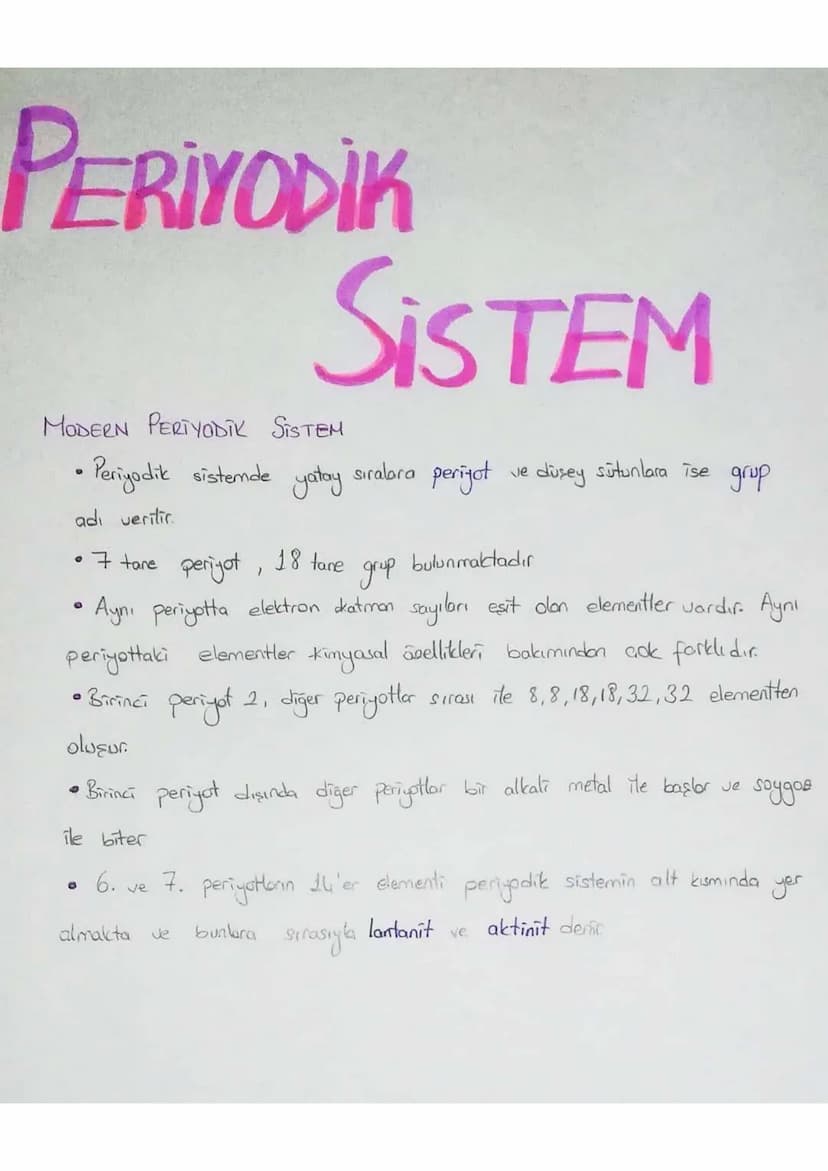 PERİYODİK
SİSTEM
MODERN PERİYODİK SİSTEM
• Periyodik sistemde yatay sıralara periyot ve düşey sütunlara ise grup
adı verilir.
• 7 tane periyot, 18 tane grup bulunmaktadır
• Aynı periyotta elektron katman sayıları eşit olan elementler vardır. Aynı
periyottaki elementler kimyasal özellikleri bakımından çok farklıdır.
• Birinci periyot 2, diğer periyotlar sırası ile 8,8,18,18,32,32 elementten
oluşur.
• Birinci periyot dışında diğer periyotlar bir alkali metal ile başlar ve soygos
ile biter
• 6. ve 7. periyotların 14'er elementi periyodik sistemin alt kısmında yer
almakta ve bunlara sırasıyla lantanit ve aktinit denir